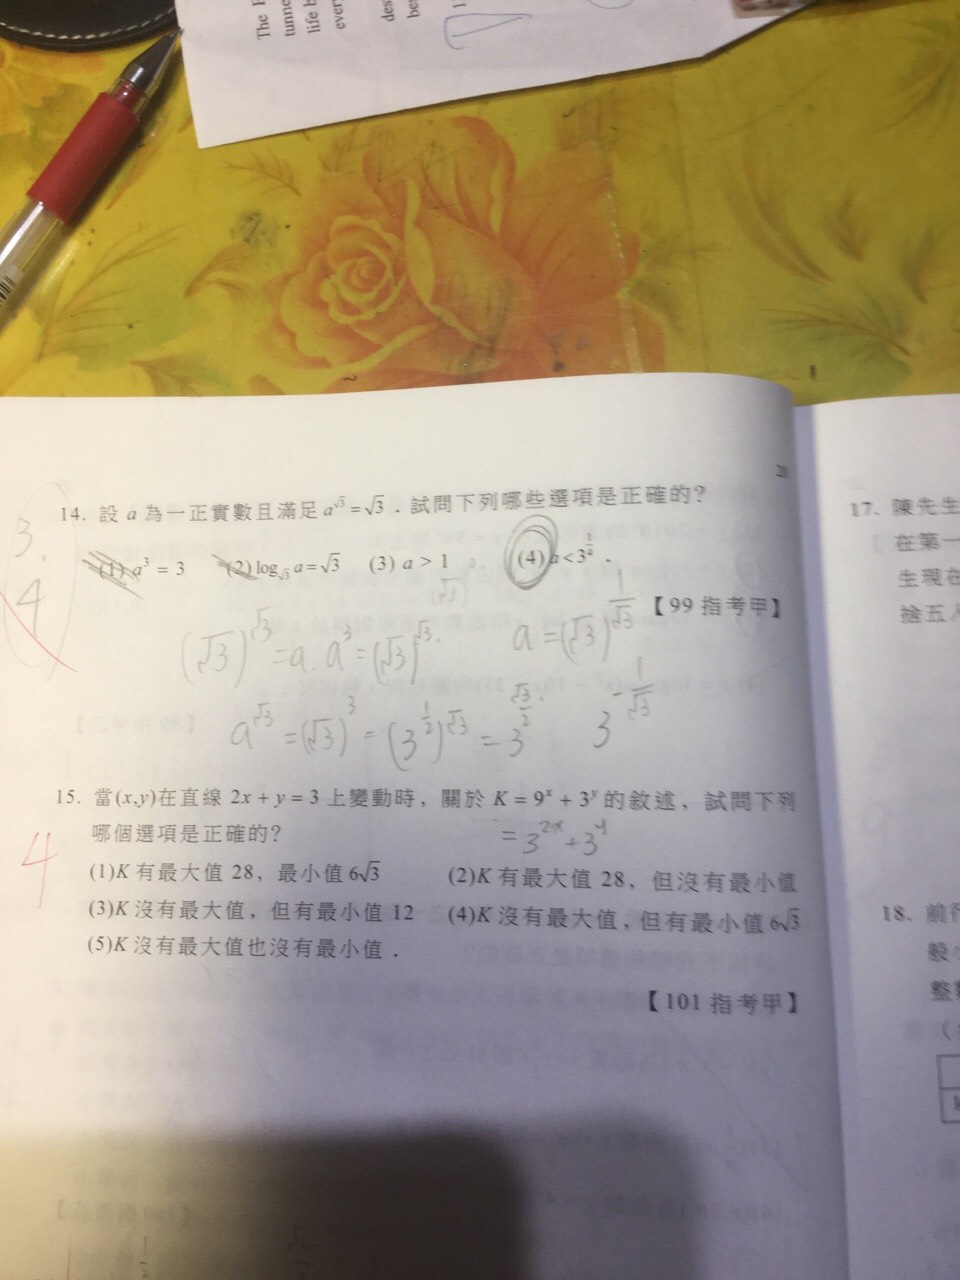 The F
tunne
life b
every
des
be
21
14. 設 a 為一正實數且滿足 a^√3 = √3．試問下列哪些選項是正確的？
(1) a³ = 3 (2) log_√3 a = √3 (3) a > 1 (4) a < 3^(1/4)．
【99 指考甲】
3.
4
(√3)^√3 = a. a³ = (√3)^√3.
a = (√3)^(1/√3)
a^√3 = (√3)³ = (3^(1/2))^√3 = 3^(√3/2).
15. 當(x,y)在直線 2x + y = 3 上變動時，關於 K = 9^x + 3^y 的敘述，試問下列
哪個選項是正確的？
= 3^2x + 3^y
4
(1)K 有最大值 28，最小值 6√3 (2)K 有最大值 28，但沒有最小值
(3)K 沒有最大值，但有最小值 12 (4)K 沒有最大值，但有最小值 6√3
(5)K 沒有最大值也沒有最小值．
【101 指考甲】
17. 陳先生
在第一
生現在
捨五
18. 前
般
整